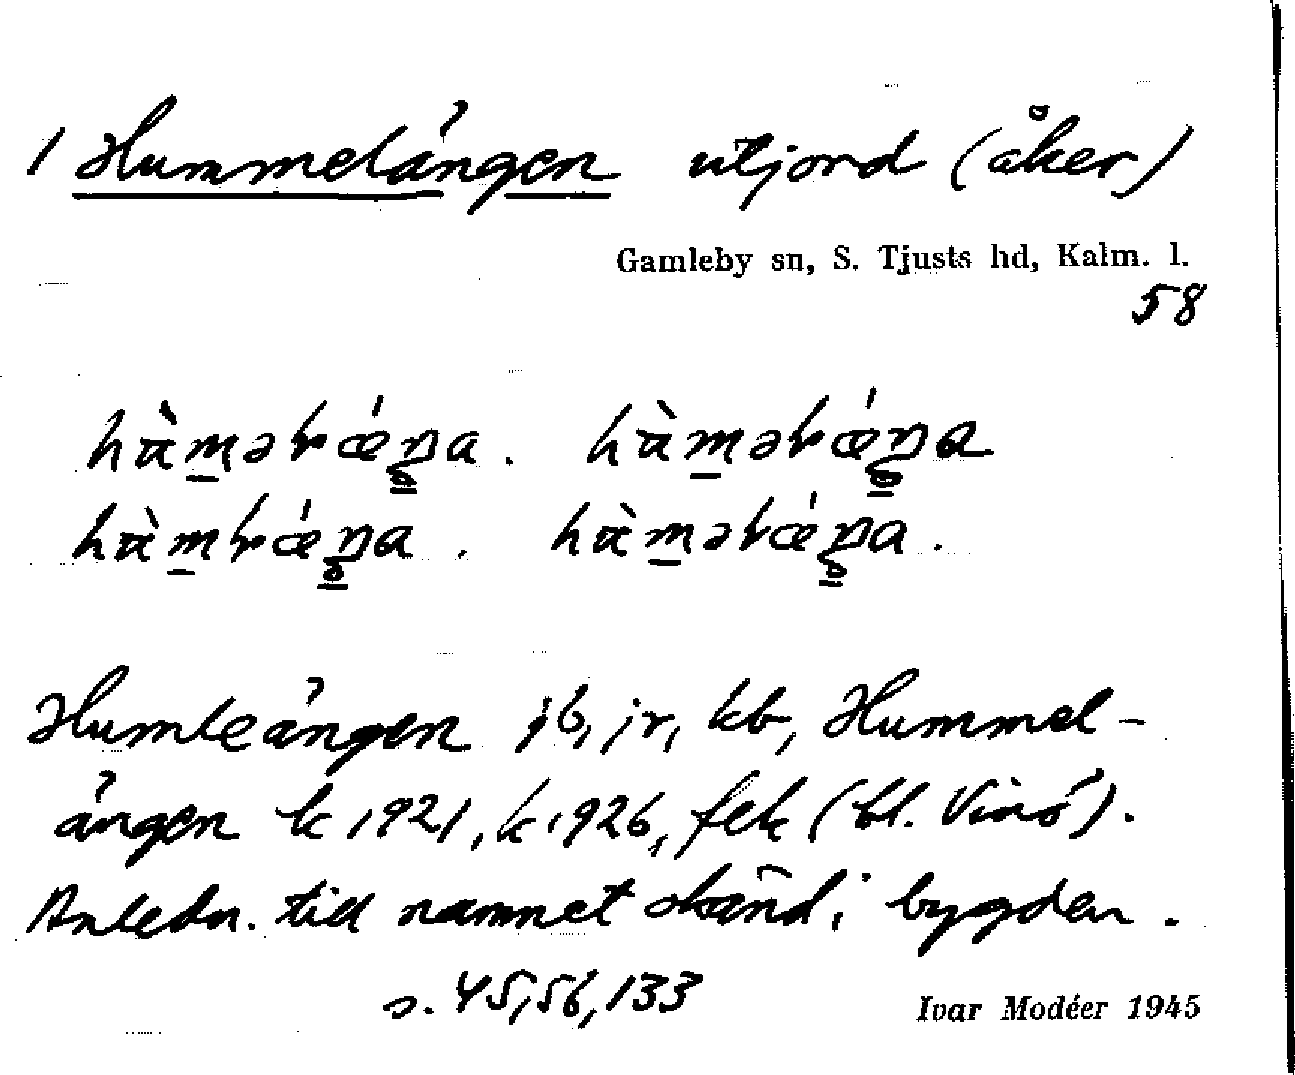 1 Hummelängen utjord (åker)
Gamleby sn, S. Tjusts hd, Kalm. l.
58
Humleängen jb, jr, kb, Hummel-
ängen k 1921, k 1926, fek (bl. Vinö).
Anledn. till namnet okänd i bygden.
s. 45, 56, 133
Ivar Modéer 1945